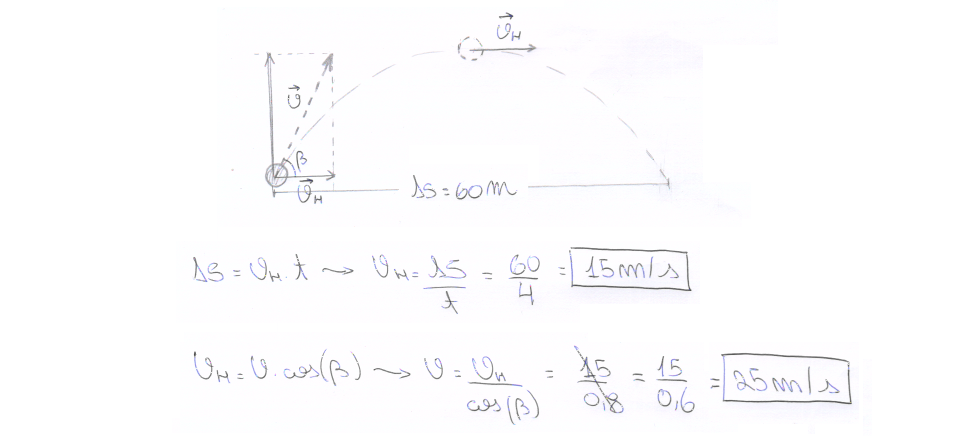 v⃗ₕ
v⃗
β
v⃗ₕ
ΔS = 60m
ΔS = vₕ . t → vₕ = ΔS/t = 60/4 = 15m/s
vₕ = v . cos(β) → v = vₕ/cos(β) = 15/0,8 = 15/0,6 = 25m/s